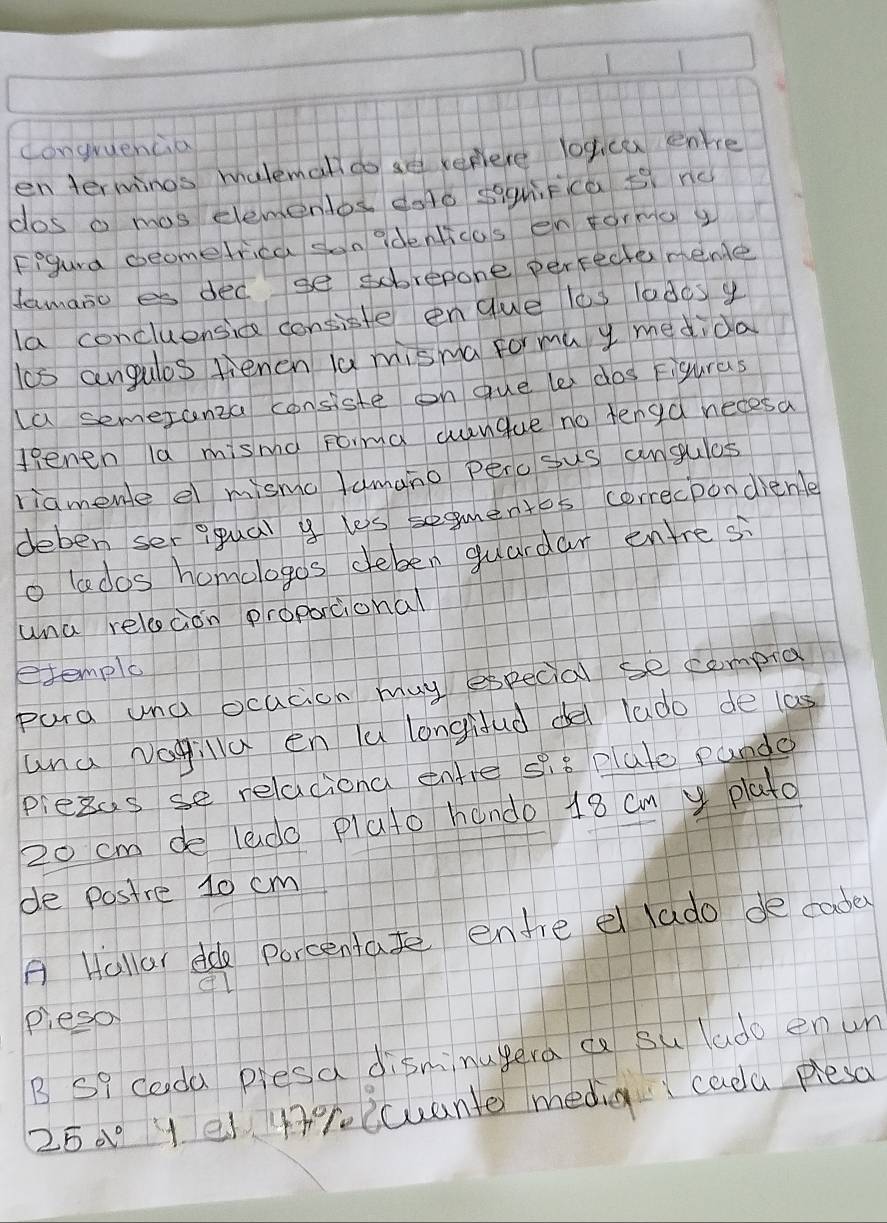 congruencia
en terminos matematico se refiere logica entre
dos o mas elementos esto significa si no
Figura geometrica son identicas en forma y
tamaño es dec se sobrepone perfectamente
la concluensia consiste en que los lados y
los angulos tienen la misma forma y medida
La semejanza consiste en que le dos Figuras
tienen la misma Forma aunque no tenga necesa
riamente el mismo tamaño pero sus angulos
deben ser igual y los segmentos correcpondiente
o lados homologos deben guardar entre sí
una relación proporcional
ejemplo
para una ocacion muy especial se compra
una vagilla en la longitud del lado de las
piezas se relaciona entre si: plato pando
20 cm de lado plato hondo 18 cm y plato
de postre 10 cm
A Hallar el porcentaje entre el lado de cada
piesa
B si cada piesa disminuyera a su lado en un
25% y el 47% ¿cuanto media cada piesa